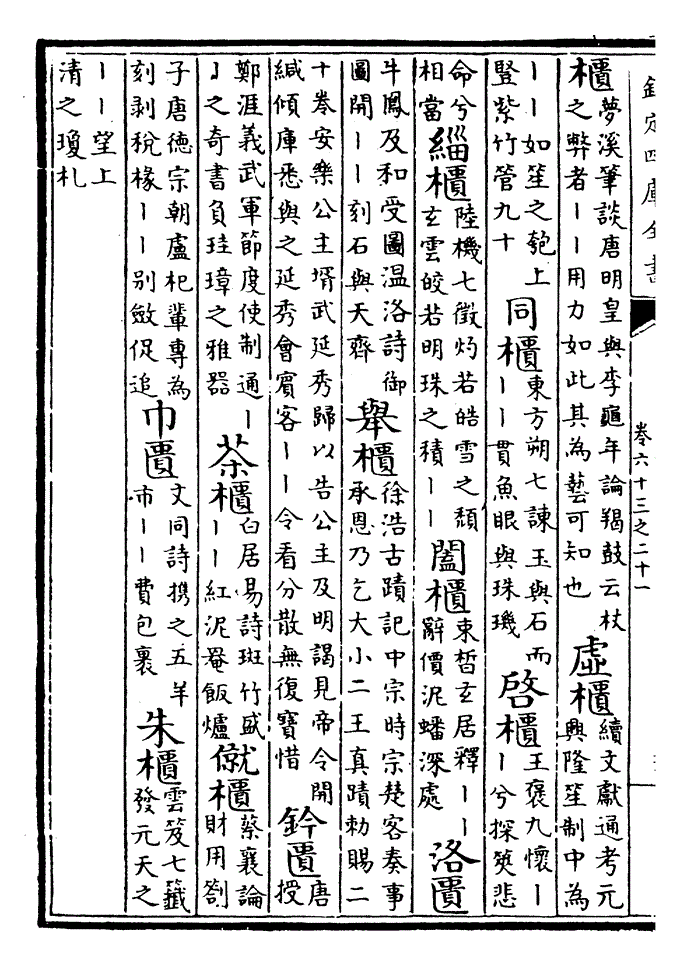 欽定四庫全書
卷六十三之二十一
櫃 夢溪筆談唐明皇與李龜年論羯鼓云杖之弊者丨丨用力如此其為藝可知也 虛櫃 續文獻通考元興隆笙制中為
丨丨如笙之匏上豎紫竹管九十 同櫃 東方朔七諫玉與石而丨丨貫魚眼與珠璣 啓櫃 王褒九懷丨丨兮探筴悲
命兮相當 緇櫃 陸機七徵灼若皓雪之頹玄雲皎若明珠之積丨丨 闔櫃 束皙玄居釋丨丨辭價泥蟠深處 洛匱
牛鳳及和受圖温洛詩御圖開丨丨刻石與天齊 舉櫃 徐浩古蹟記中宗時宗楚客奏事承恩乃乞大小二王真蹟勅賜二
十卷安樂公主壻武延秀歸以告公主及明謁見帝令開緘傾庫悉與之延秀會賓客丨丨令看分散無復寶惜 鈐匱 唐授
鄭涯義武軍節度使制通丨丨之奇書負珪璋之雅器 茶櫃 白居易詩斑竹盛丨丨紅泥罨飯爐 僦櫃 蔡襄論財用劄
子唐德宗朝盧杞輩專為刻剥稅椽丨丨别斂促追 巾匱 文同詩携之五羊市丨丨費包裹 朱櫃 雲笈七籤發元天之
丨丨望上清之瓊札